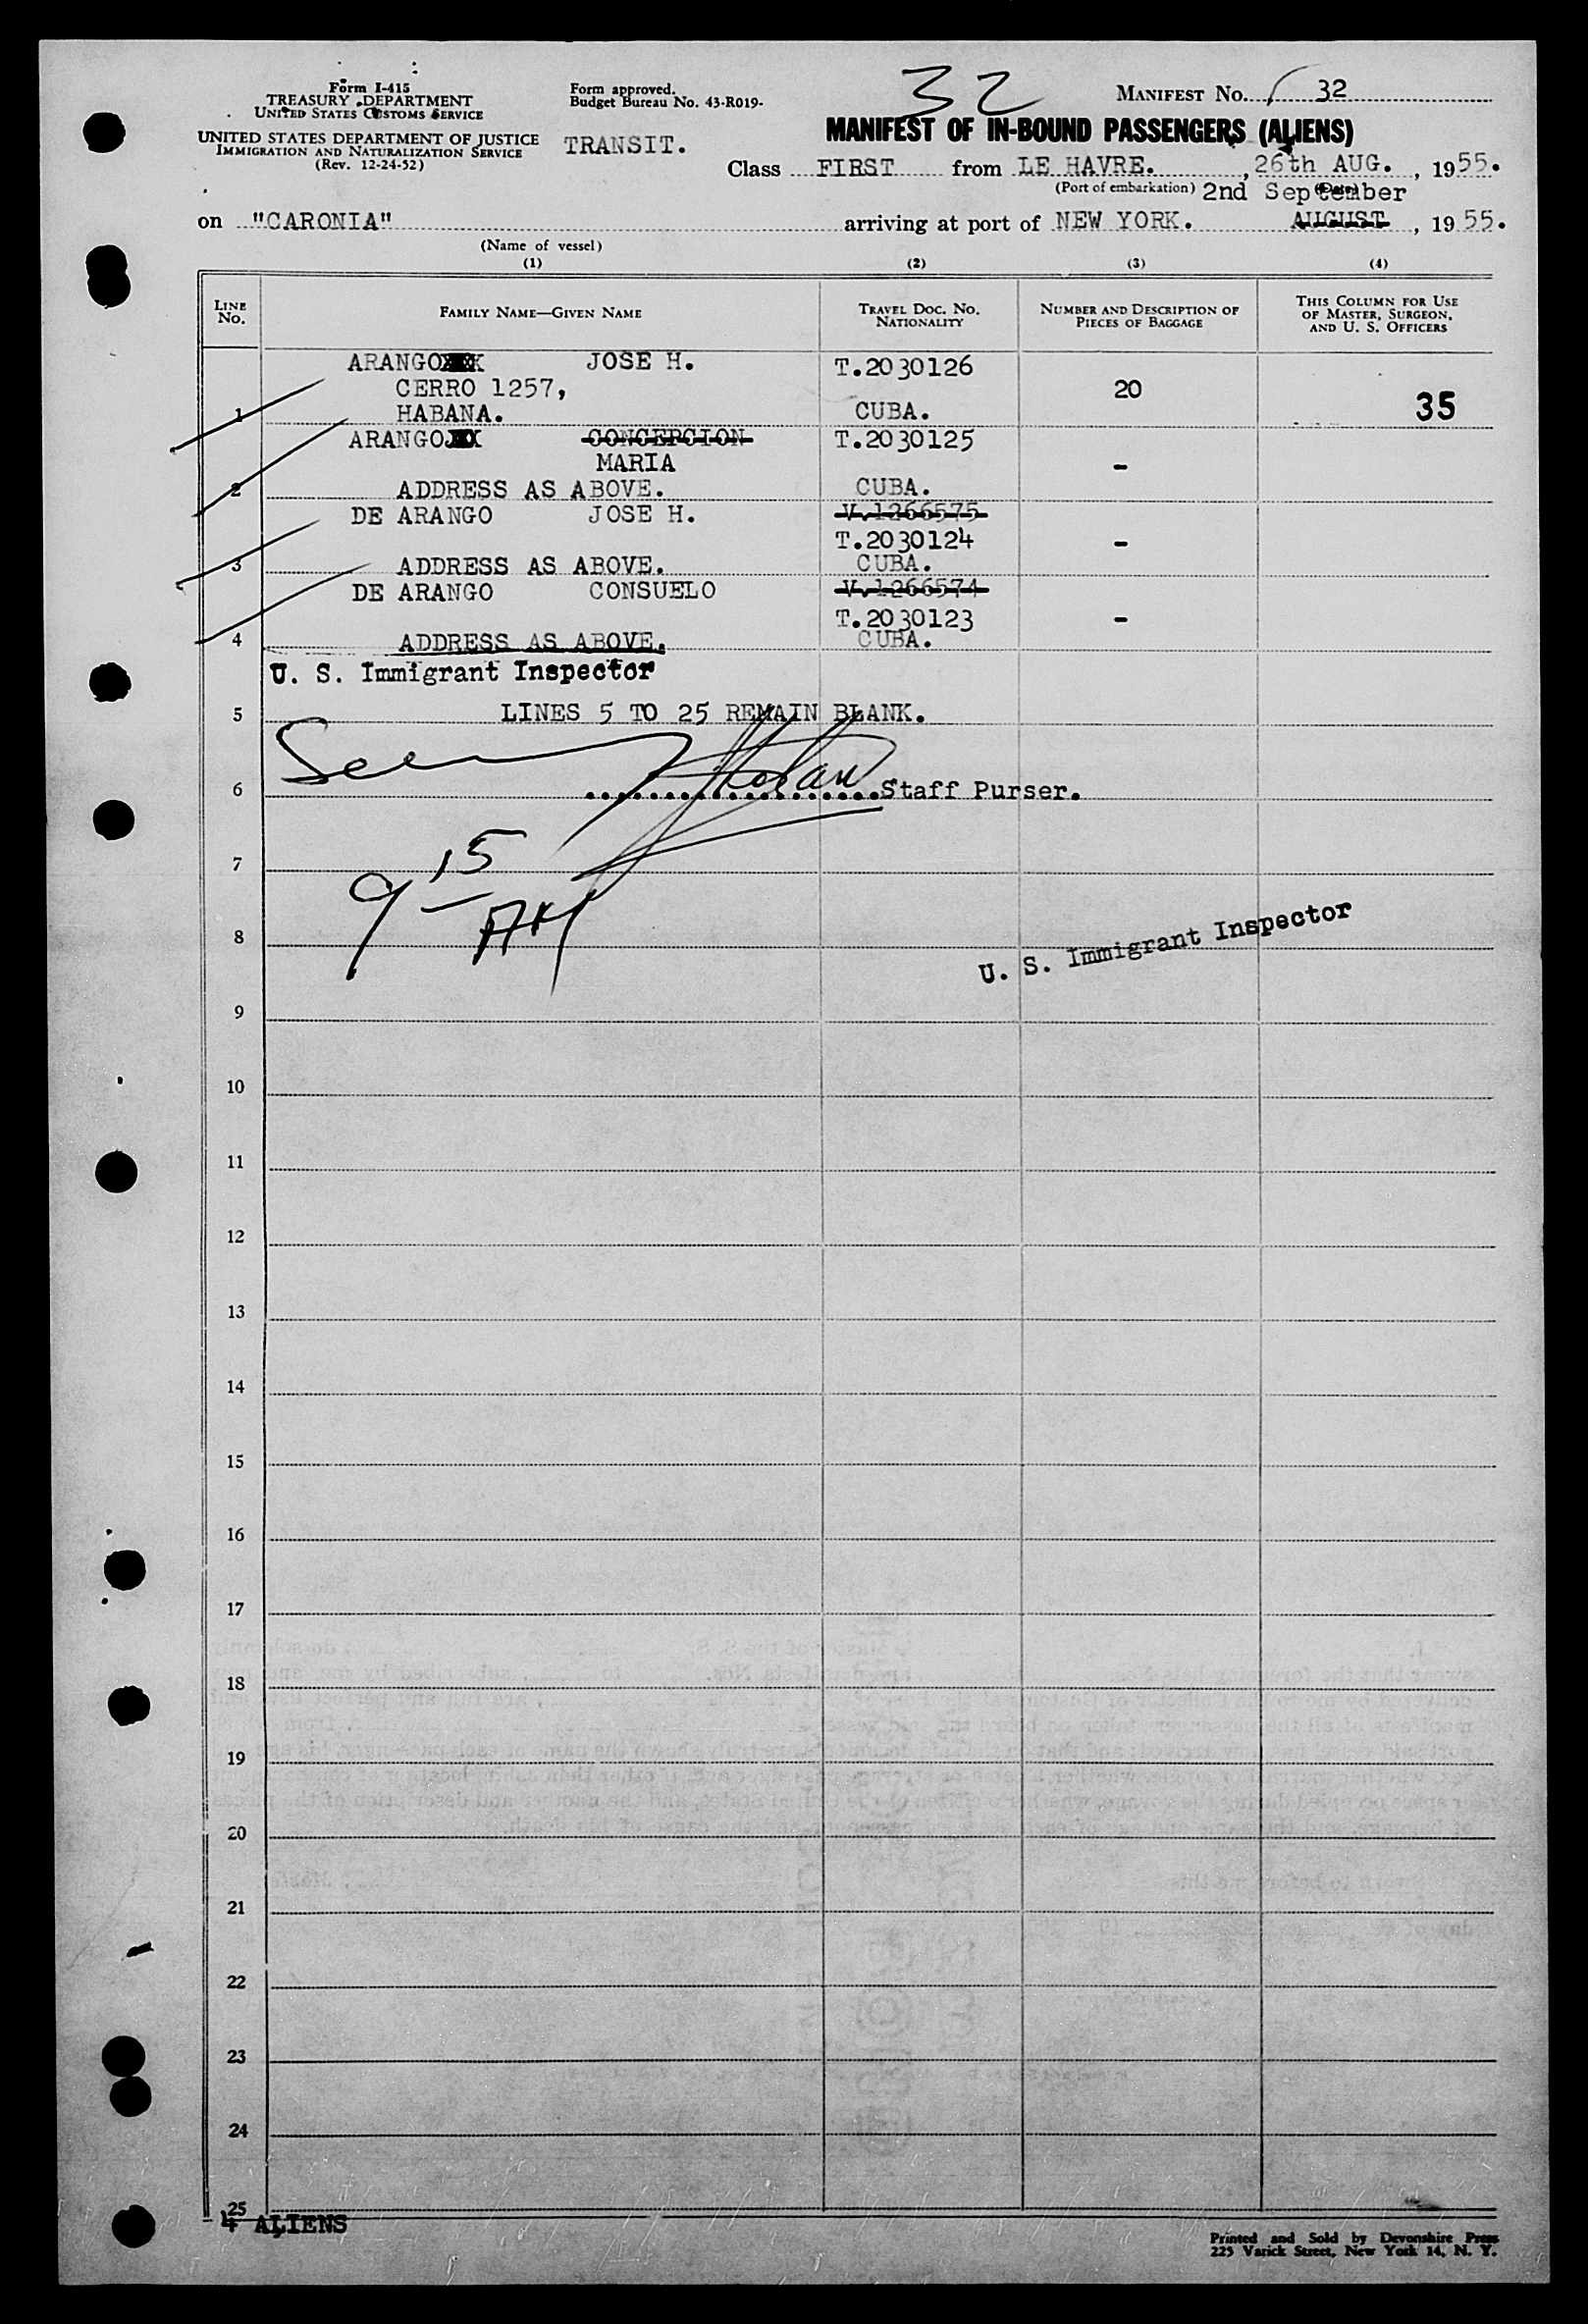 Form I-415
TREASURY DEPARTMENT
UNITED STATES CUSTOMS SERVICE
UNITED STATES DEPARTMENT OF JUSTICE
IMMIGRATION AND NATURALIZATION SERVICE
(Rev. 12-24-52)
Form approved.
Budget Bureau No. 43-R019-
TRANSIT.
32
MANIFEST No. 32
MANIFEST OF IN-BOUND PASSENGERS (ALIENS)
Class FIRST from LE HAVRE., 26th AUG., 1955.
(Port of embarkation) (Date)
2nd September
on "CARONIA" arriving at port of NEW YORK. AUGUST, 1955.
(Name of vessel)
(1) (2) (3) (4)
LINE No. FAMILY NAME—GIVEN NAME TRAVEL DOC. NO. NATIONALITY NUMBER AND DESCRIPTION OF PIECES OF BAGGAGE THIS COLUMN FOR USE OF MASTER, SURGEON, AND U. S. OFFICERS
ARANGO JOSE H. T.2030126
CERRO 1257, 20
1 HABANA. CUBA. 35
ARANGO CONCEPCION T.2030125
MARIA -
2 ADDRESS AS ABOVE. CUBA.
DE ARANGO JOSE H. V.1266575
T.2030124 -
3 ADDRESS AS ABOVE. CUBA.
DE ARANGO CONSUELO V.1266574
T.2030123 -
4 ADDRESS AS ABOVE. CUBA.
U. S. Immigrant Inspector
5 LINES 5 TO 25 REMAIN BLANK.
6 Staff Purser.
7
9 15 AM
8 U. S. Immigrant Inspector
9
10
11
12
13
14
15
16
17
18
19
20
21
22
23
24
25
4 ALIENS
Printed and Sold by Devonshire Press
225 Varick Street, New York 14, N. Y.